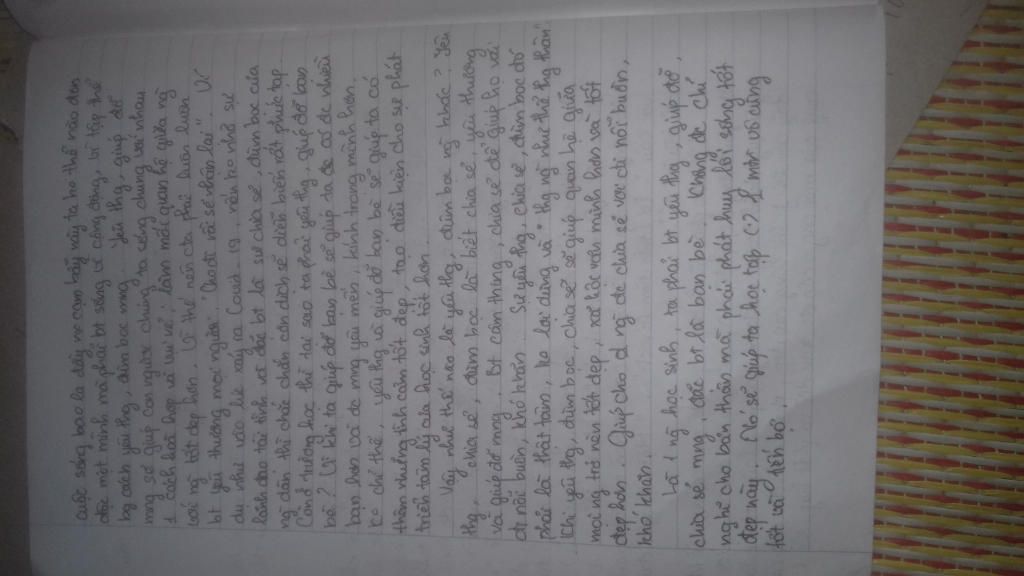 cuộc sống bao la đầy mơ cam bẫy này ta ko thể nào đơn
độc một mình mà phải bt sống vì cộng đồng, vì tập thể
bg cách yêu thg, đùm bọc mng. Yêu thg, giúp đỡ
mng sẽ giúp con người chúng ta sống chung với nhau
1 cách hoà hợp, vui vẻ, làm mối quan hệ giữa ng
với ng tốt đẹp hơn. Vì thế nên cta phải luôn luôn
bt yêu thương mọi người. "Cho đi và sẽ nhận lại". Ví
dụ như vào lúc xảy ra Covid 19, nếu ko nhờ sự
lãnh đạo tài tình và đặc bt là sự chia sẻ, đùm bọc của
ng dân thì chắc chắn cơn dịch sẽ diễn biến rất phức tạp
Còn ở trường học thì tại sao ta phải yêu thg, giúp đỡ bạn
bè? Vì khi ta giúp đỡ bạn bè sẽ giúp ta đc có đc nhiều
bạn hơn và đc mng yêu mến, kính trọng mình hơn.
ko chỉ thế, yêu thg và giúp đỡ bạn bè sẽ giúp ta có
thêm những tình cảm tốt đẹp, tạo điều kiện cho sự phát
triển tâm lý của học sinh tốt hơn.
Vậy như thế nào là yêu thg, đùm bọc ng khác? Yêu
thg, chia sẻ, đùm bọc là biết chia sẻ, yêu thương
và giúp đỡ mng. Bt cảm thông, chia sẻ để giúp họ với
đi nỗi buồn, khó khăn. Sự yêu thg, chia sẻ, đùm bọc đó
phải là thật tâm, ko lợi dụng và thg ng như thể thg thân
Khi yêu thg, đùm bọc, chia sẻ sẽ giúp quan hệ giữa
mọi ng trở nên tốt đẹp, xã hội văn minh hơn và tốt
đẹp hơn. Giúp cho ng đc chia sẻ vơi đi nỗi buồn,
khó khăn.
Là 1 ng học sinh, ta phải bt yêu thg, giúp đỡ,
chia sẻ mng, đặc bt là bạn bè. Không đc chỉ
nghĩ cho bản thân mà phải phát huy lối sống tốt
đẹp này. Nó sẽ giúp ta học tập 1 môi vô cùng
tốt và tiến bộ.